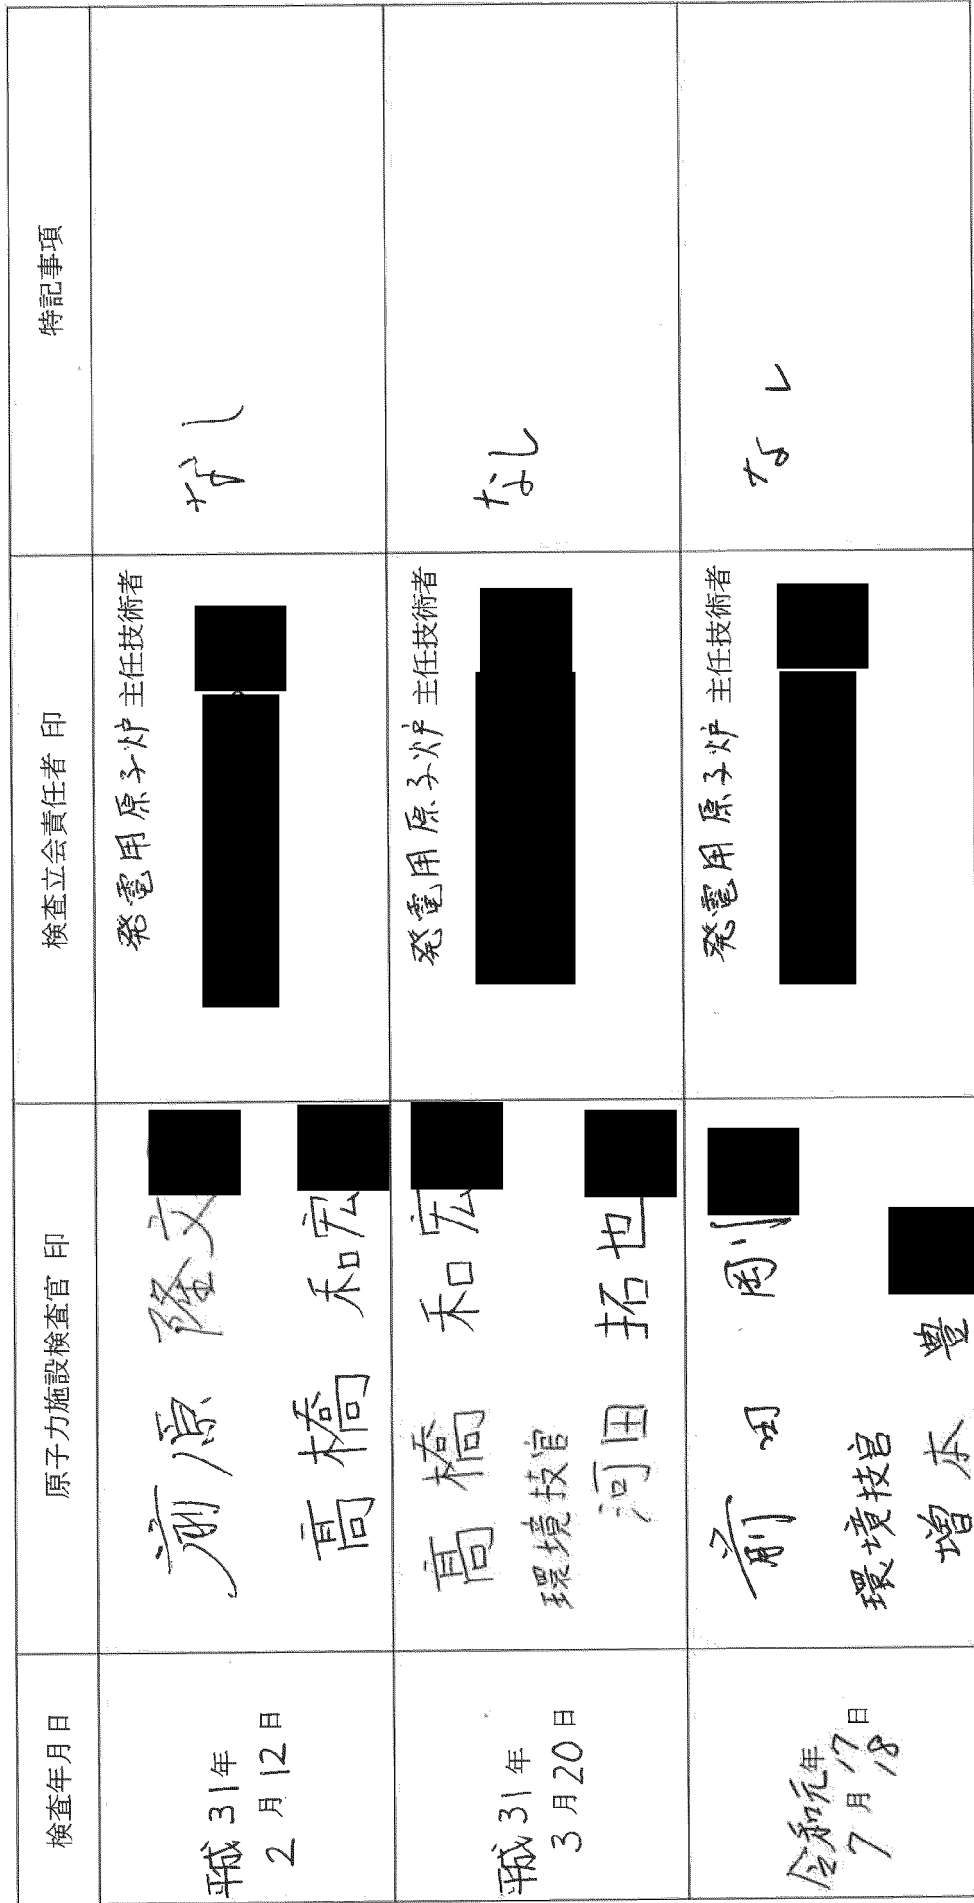 検査年月日
原子力施設検査官 印
検査立会責任者 印
特記事項
平成31年
2月12日
前原 隆文
高橋 和宏
発電用原子炉 主任技術者
なし
平成31年
3月20日
高橋 和宏
環境技官
河田 拓也
発電用原子炉 主任技術者
なし
令和元年
7月17日
18
前田 剛
環境技官
増本 豊
発電用原子炉 主任技術者
なし